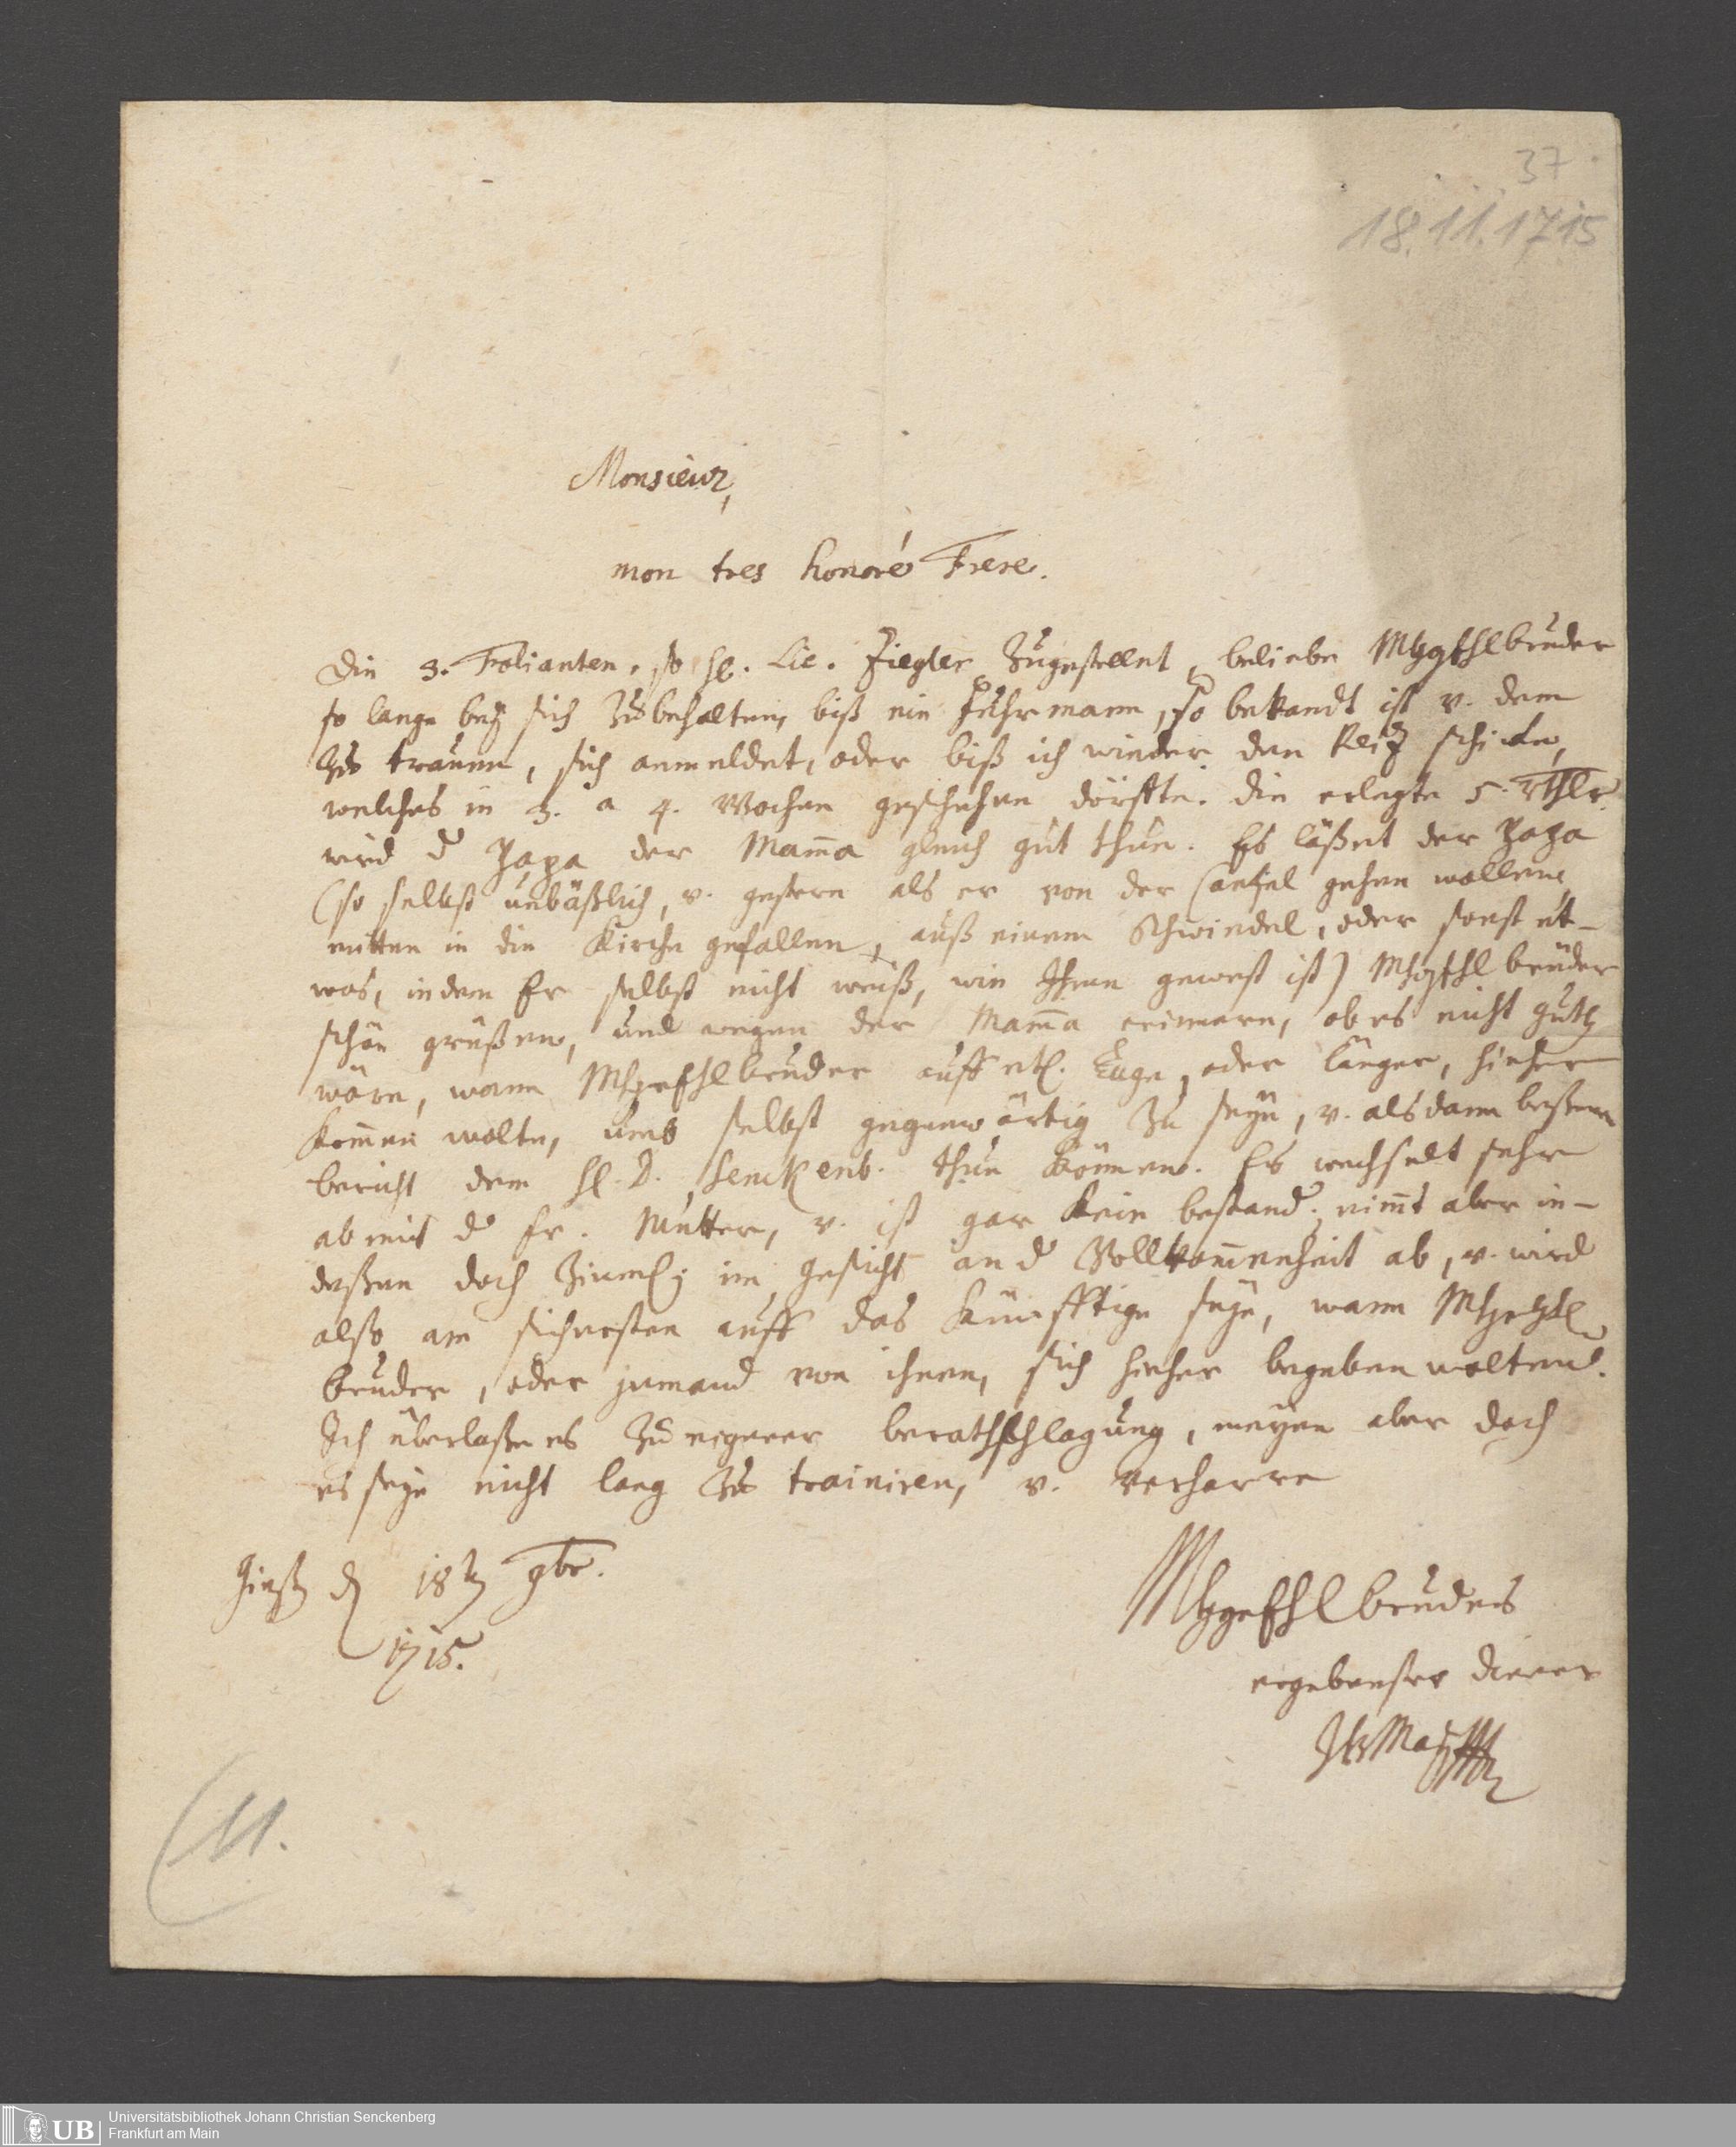 37
18.11.1715
Monsieur,
mon tres honoré Frere.
Die 3. Folianten, so H. Lic. Ziegler zugestellet, beliebe MhgfhlBruder
so lange bey sich zubehalten, biß ein Fuhrmann, so bekandt ist v. dem
zu trauen, sich anmeldet, oder biß ich wieder den Reitz schicke,
welches in 3. a 4. Wochen geschehen dörffte. Die erlegte 5. Rthlr.
wird d Papa der Mama gleich gut thun. Es läßet der Papa
(so selbst unbäßlich, v. gestern als er von der Cantzel gehen wollen
mitten in die Kirche gefallen, auß einem Schwindel, oder sonst et-
was, indem Er selbst nicht weiß, wie Ihme gewest ist) MhgfhlBruder
schön grüßen, und wegen der Mama erinnern, ob es nicht guth
wäre, wann MhgefhlBruder auff etl. Tage, oder länger, hieher
kommen wolte, umb selbst gegenwärtig zu seyn, v. alsdann beßern
bericht dem H. D. Senckenb. thun können. Es wechselt sehr
ab mit d Fr. Mutter, v. ist gar kein bestand; nimt aber in-
deßen doch zieml. im gesicht an d Vollkommenheit ab, v. wird
also am sichersten auff das künfftige seyn, wann Mhgefhl
Bruder, oder jemand von ihnen, sich hieher begeben wolten.
Ich überlaße es zu eigener berathschlagung, meyne aber doch
es seye nicht lang zu trainiren, v. verharre
Gieß d 18t 9br.
1715.
MhgefhlBruders
ergebenster Diener
M.
UB
Universitätsbibliothek Johann Christian Senckenberg
Frankfurt am Main